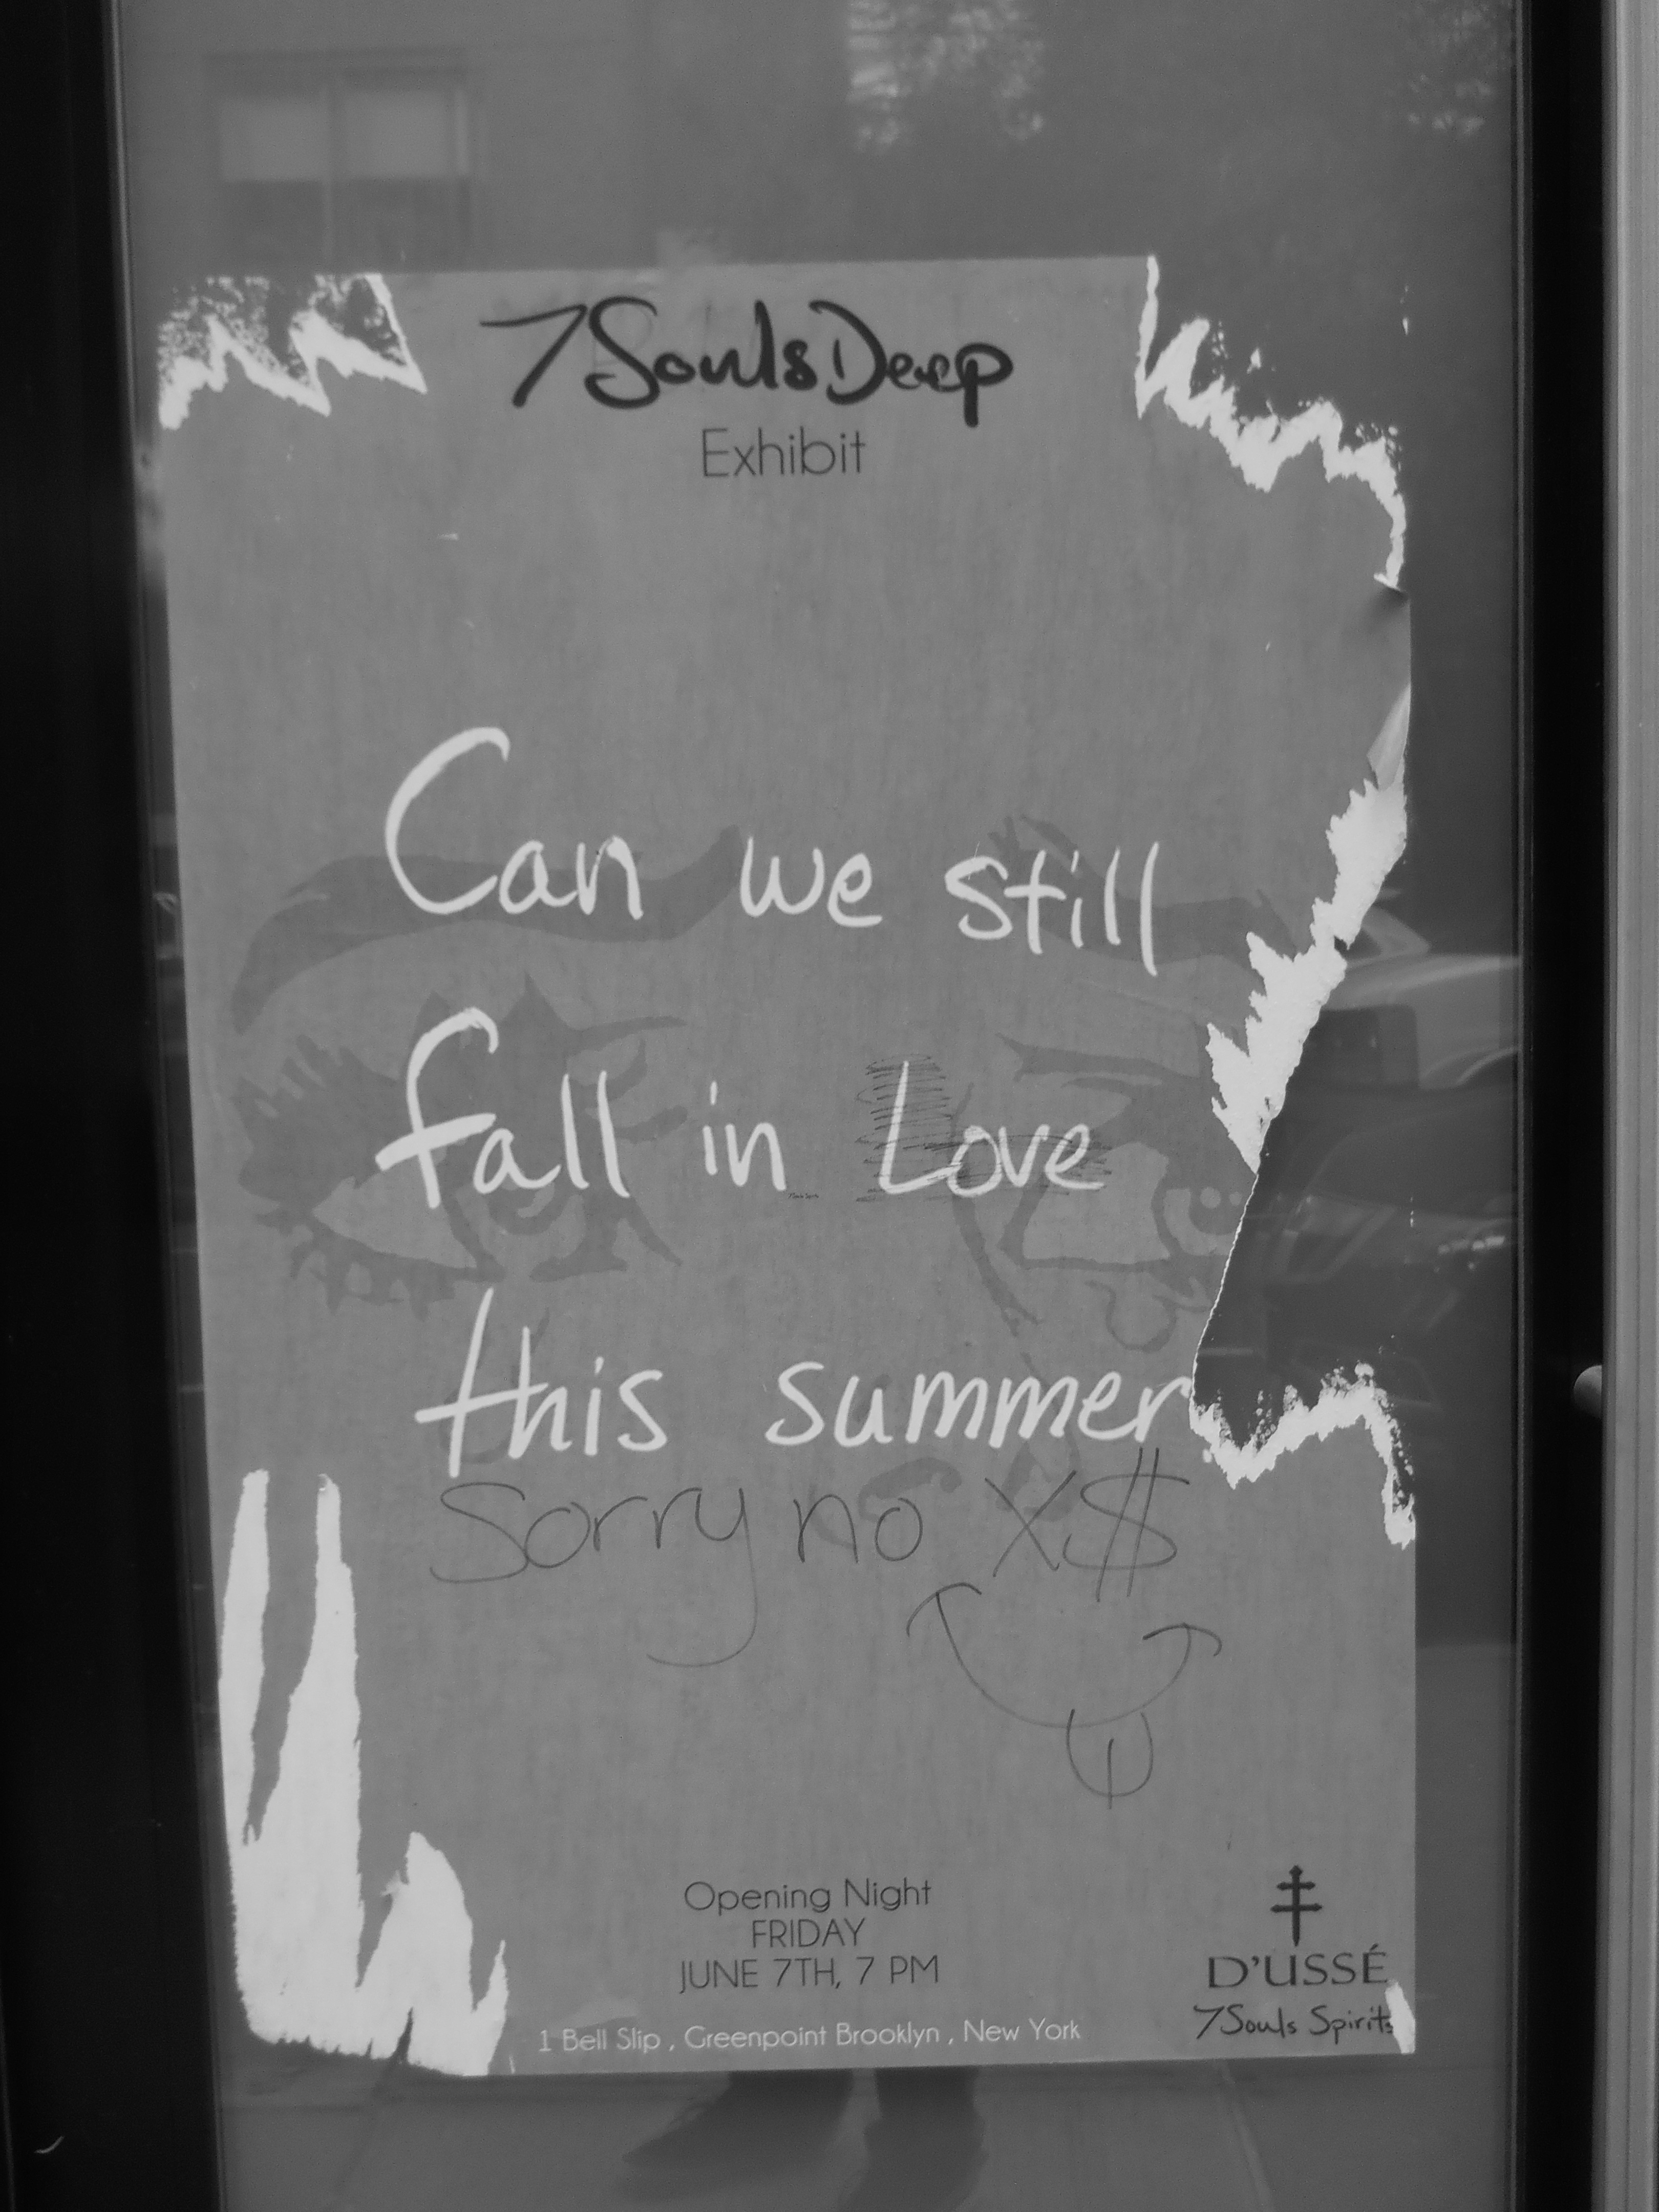 7SoulsDeep
Exhibit
Can we still
fall in Love
this summer
Sorry no X$
Opening Night
FRIDAY
JUNE 7TH, 7 PM
1 Bell Slip , Greenpoint Brooklyn , New York
D'USSÉ
7Souls Spirits